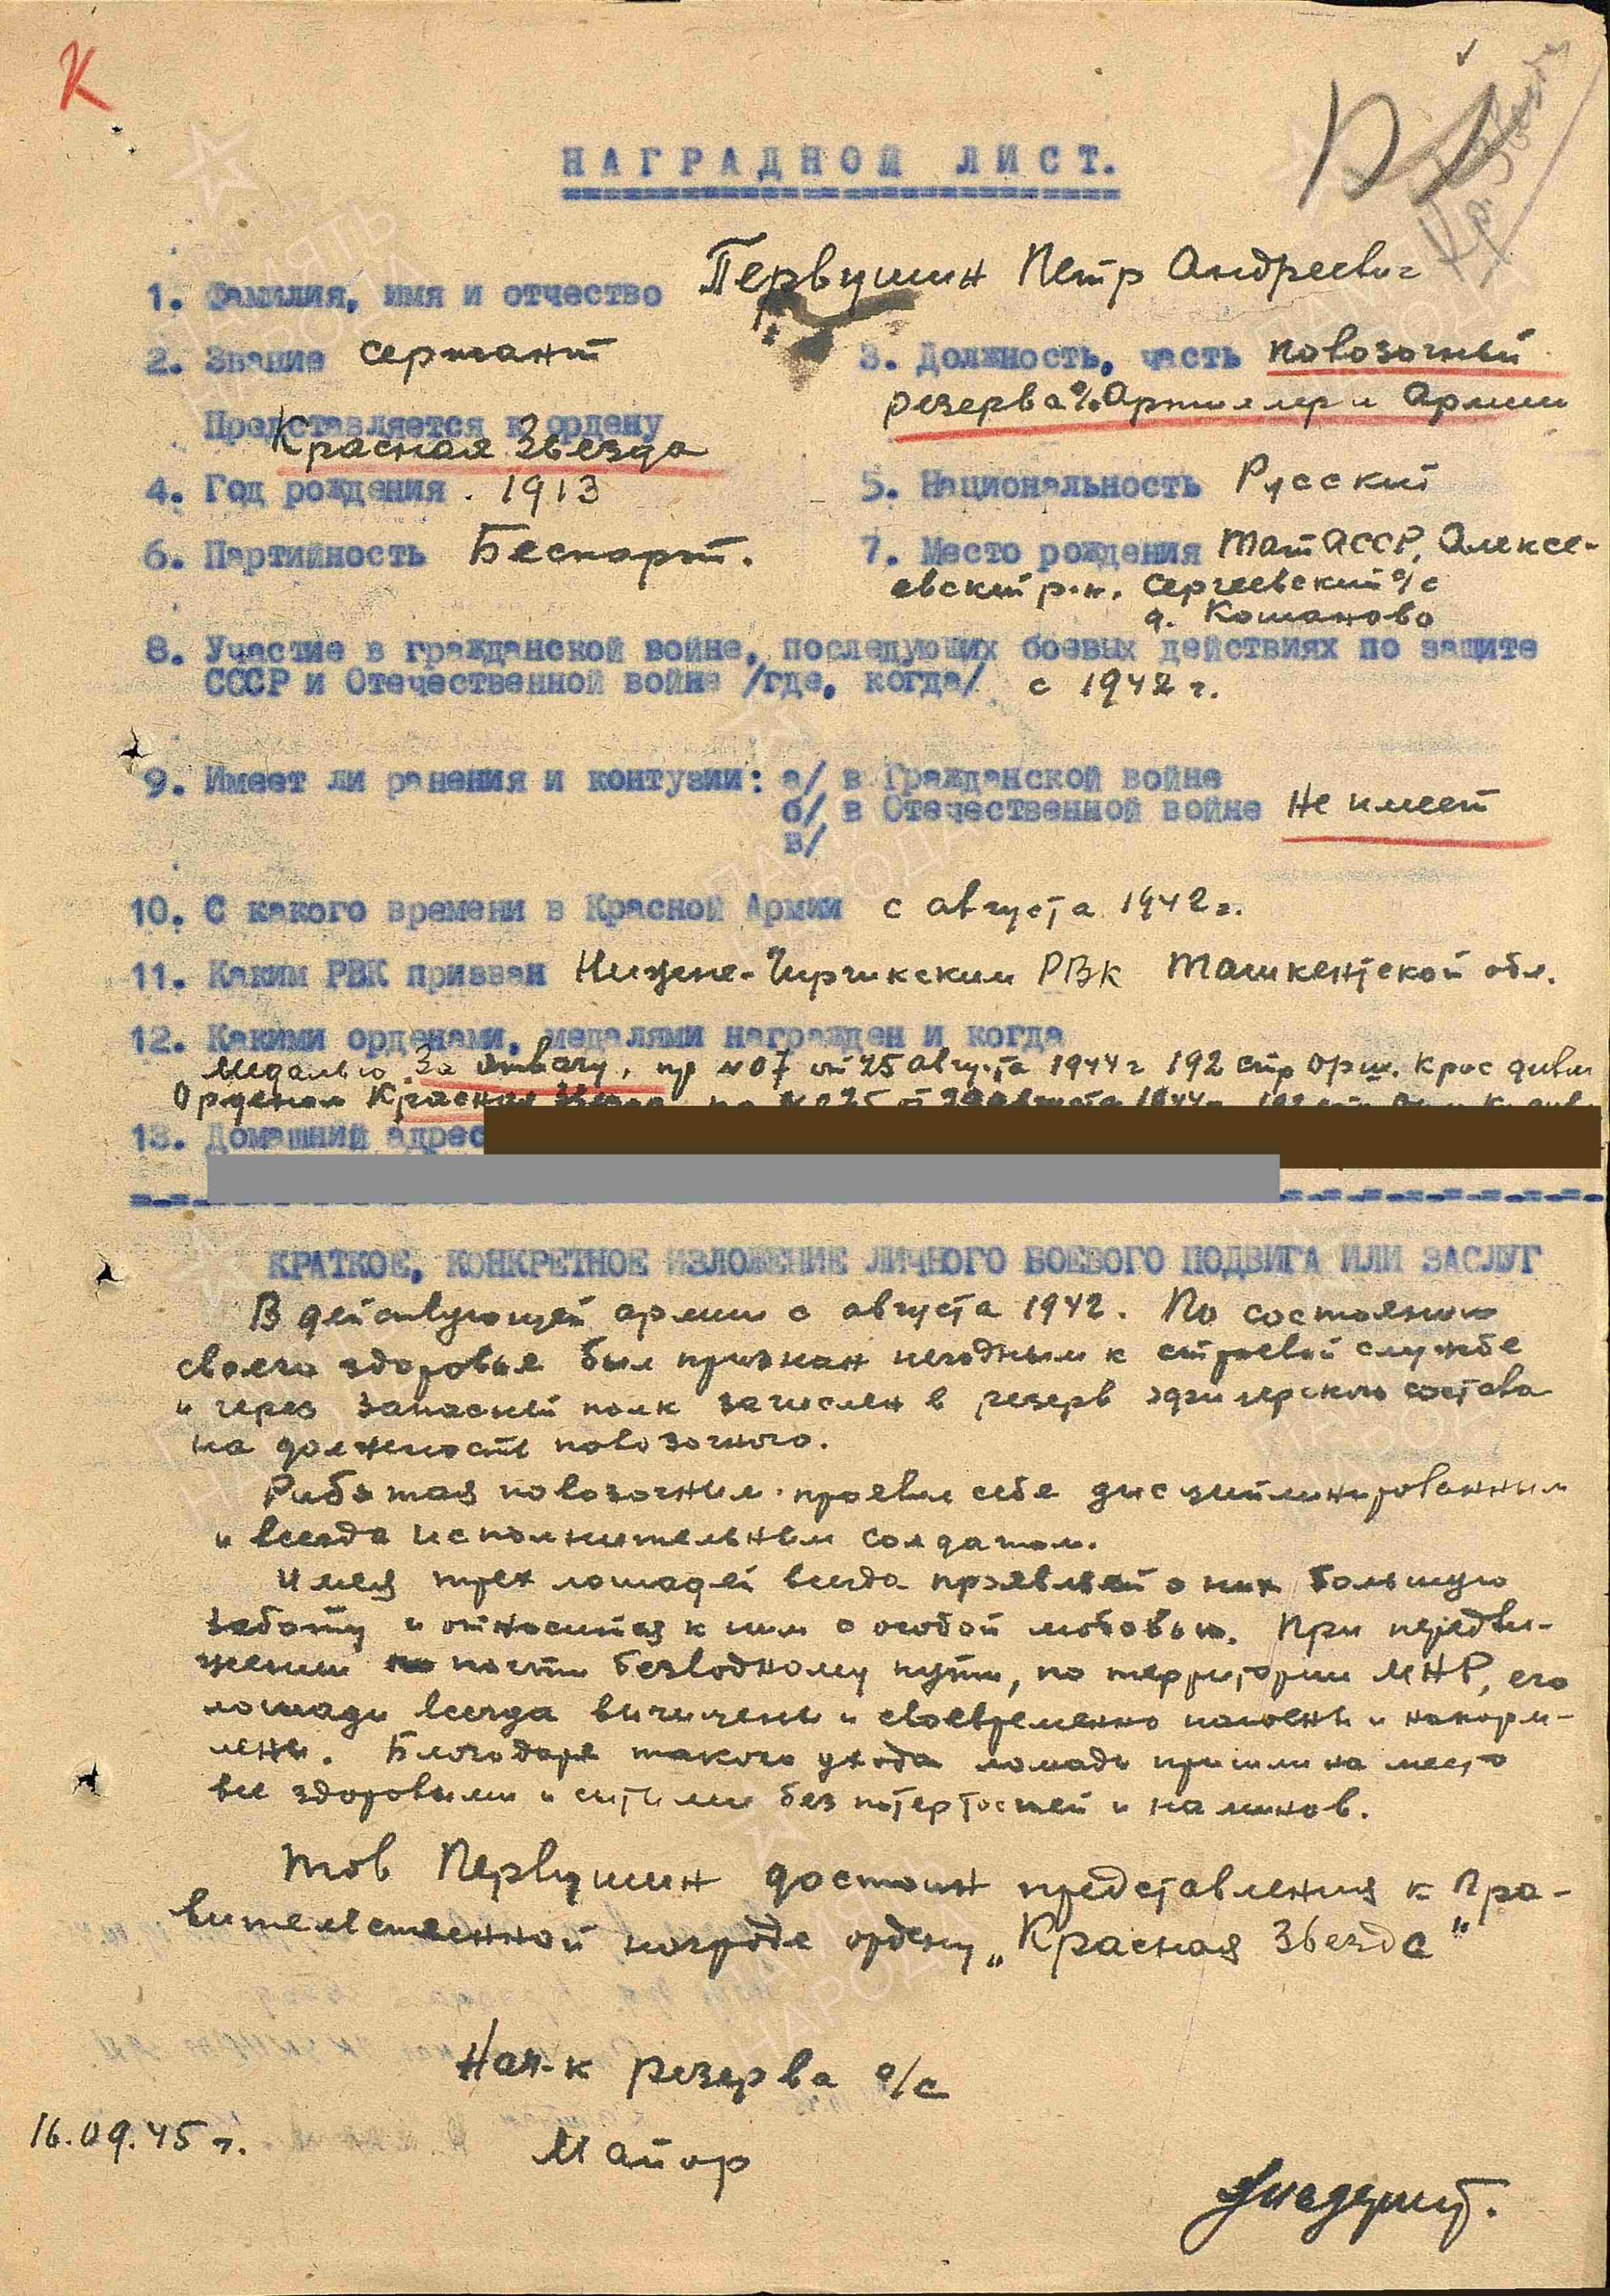 К
НАГРАДНОЙ ЛИСТ.
1. Фамилия, имя и отчество Первушин Петр Андреевич
2. Звание сержант 3. Должность, часть повозочный
резерва о/с Артиллерии Армии
Представляется к ордену
Красная Звезда
4. Год рождения 1913 5. Национальность Русский
6. Партийность Беспарт. 7. Место рождения ТатАССР, Алексе-
евский р-н, Сергеевский с/с
д. Кошаново
8. Участие в гражданской войне, последующих боевых действиях по защите
СССР и Отечественной войне /где, когда/ с 1942 г.
9. Имеет ли ранения и контузии: а/ в Гражданской войне
б/ в Отечественной войне Не имеет
в/
10. С какого времени в Красной Армии с августа 1942 г.
11. Каким РВК призван Нижне-Чирчикским РВК Ташкентской обл.
12. Какими орденами, медалями награжден и когда
Медалью За отвагу, пр №07 от 25 августа 1944 г 192 стр Орш. Крас дивизи
Орденом Красная Звезда августа 1944 г.
13. Домашний адрес
КРАТКОЕ, КОНКРЕТНОЕ ИЗЛОЖЕНИЕ ЛИЧНОГО БОЕВОГО ПОДВИГА ИЛИ ЗАСЛУГ
В действующей армии с августа 1942. По состоянию
своего здоровья был признан негодным к строевой службе
и через запасный полк зачислен в резерв офицерского состава
на должность повозочного.
Работая повозочным проявил себя дисциплинированным
и всегда исполнительным солдатом.
Имея трех лошадей всегда проявлял о них большую
заботу и относился к ним с особой любовью. При передви-
жении почти безводному пути, по территории МНР, его
лошади всегда вычищены и своевременно напоены и накорм-
лены. Благодаря такого ухода лошади пришли на место
все здоровыми и сытыми без потертостей и наминов.
Тов Первушин достоин представления к Пра-
вительственной награде ордену „Красная Звезда"
Нач-к резерва о/с
16.09.45 г. Майор
ПАМЯТЬ НАРОДА